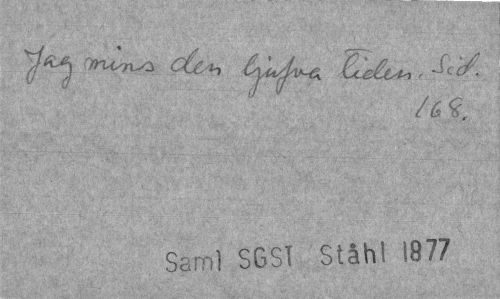 Jag mins den ljufva tiden. Sid.
168.
Saml SGST Ståhl 1877